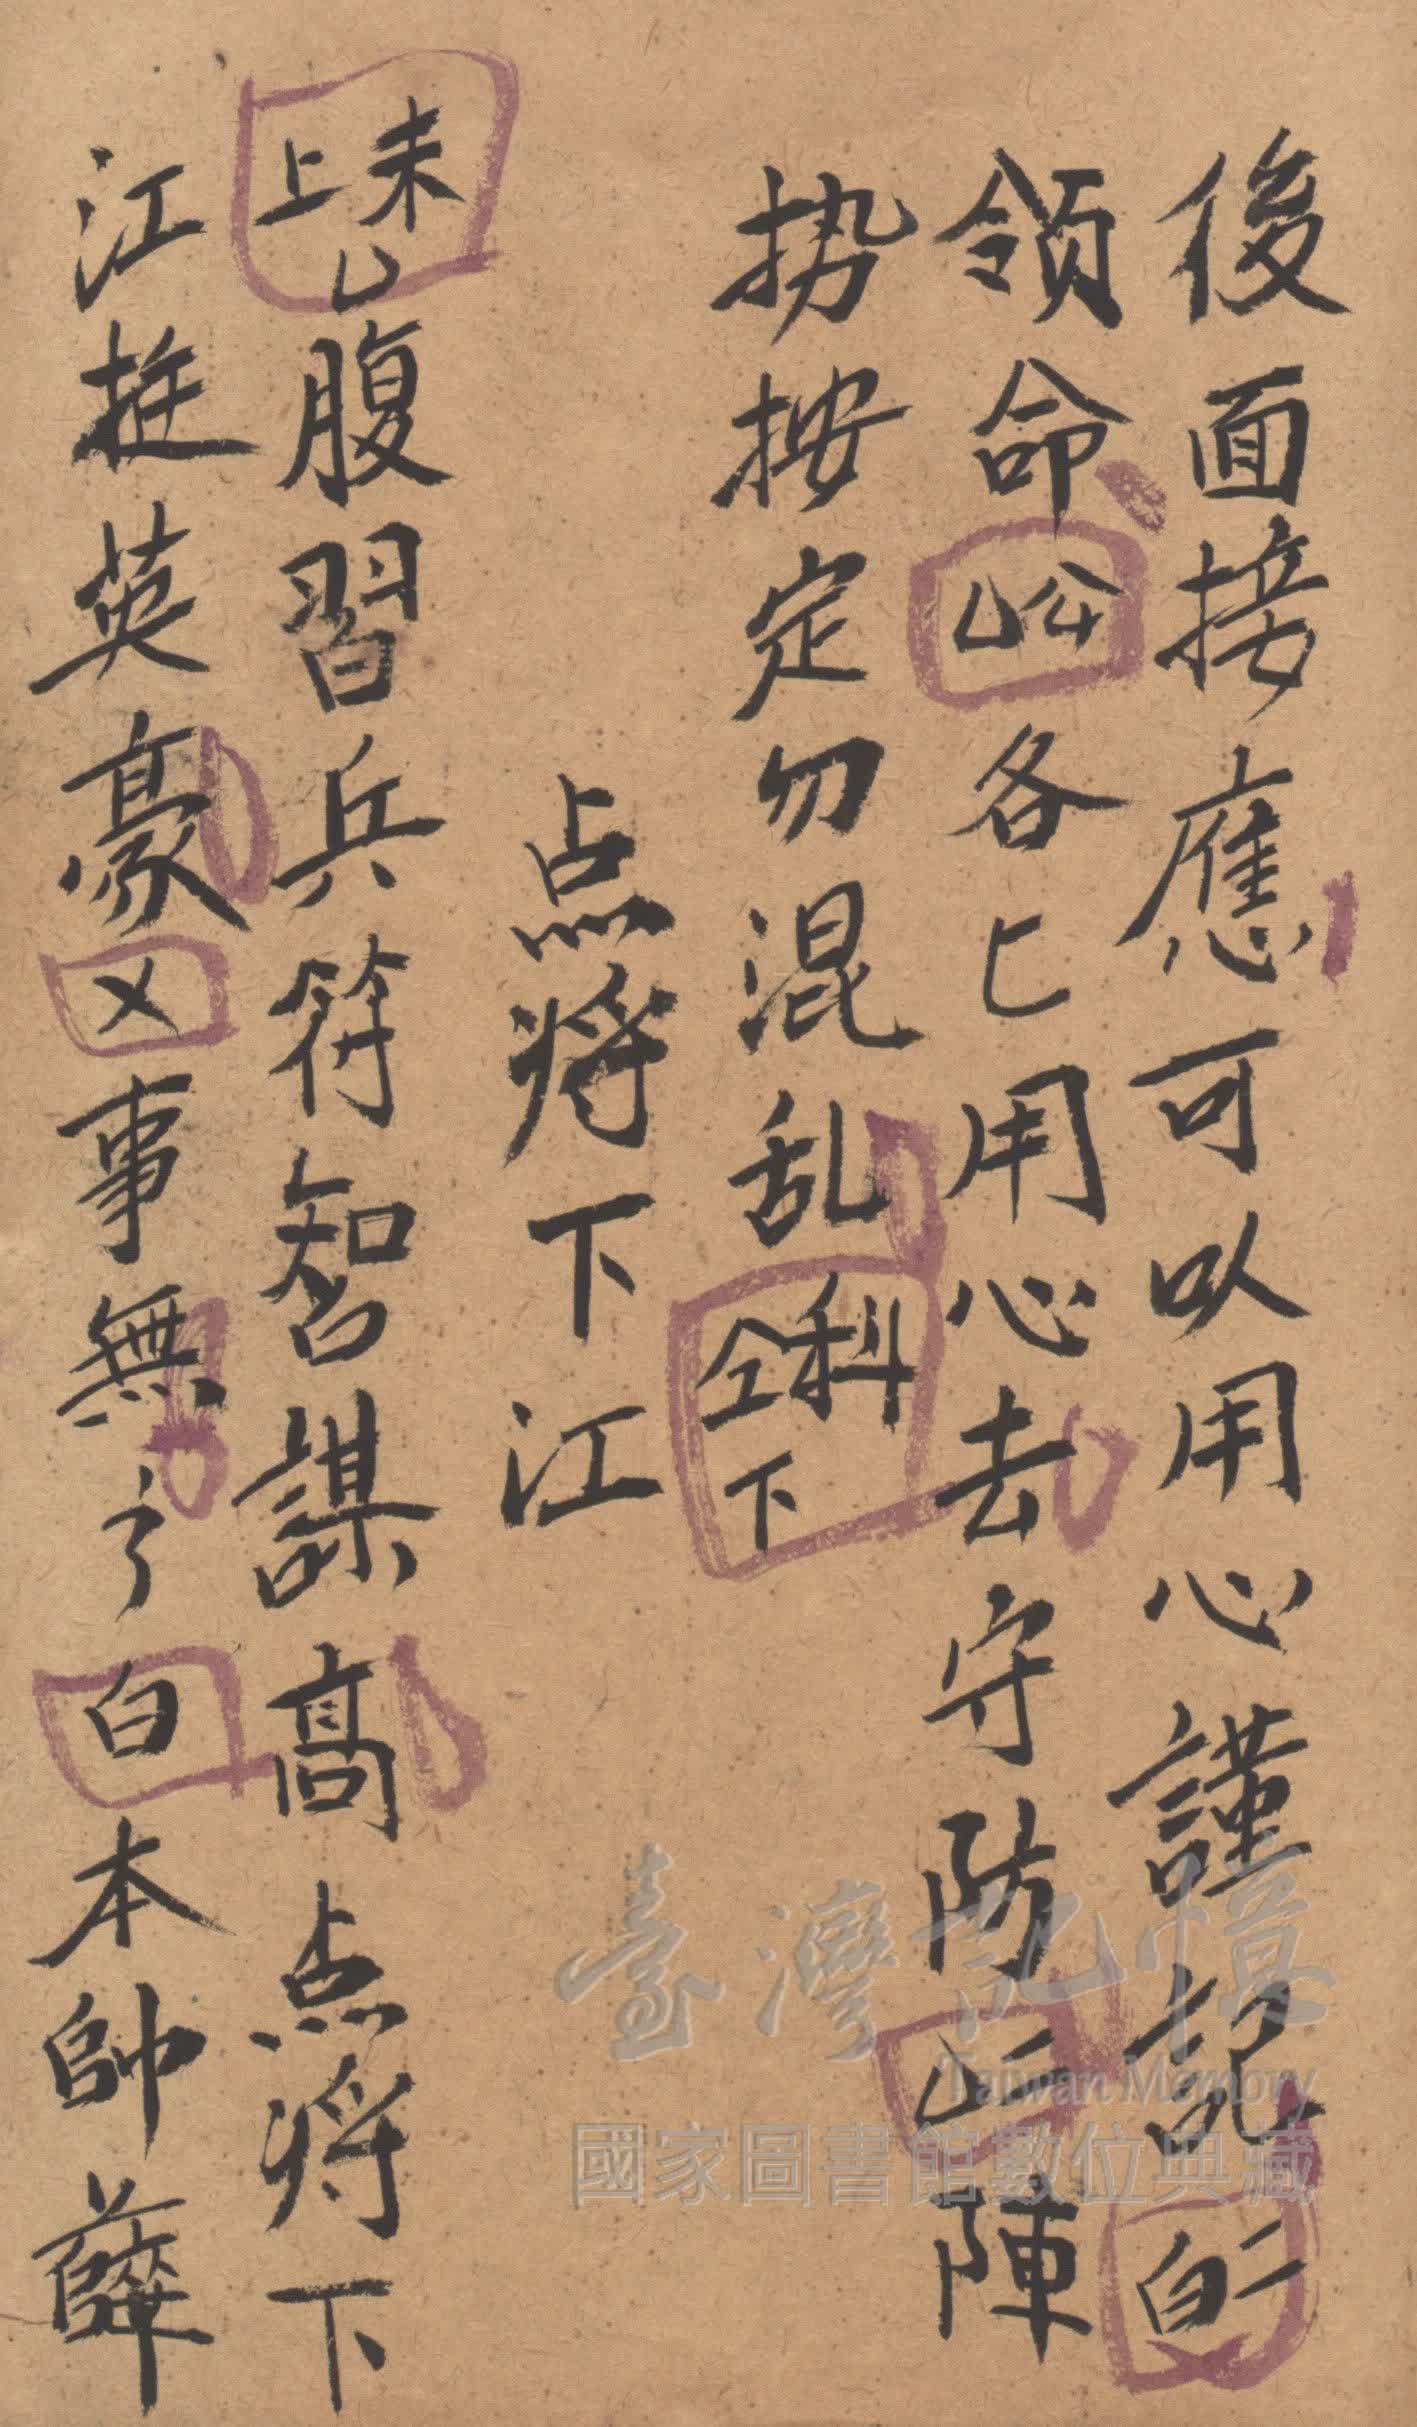 後面接應可以用心謹記二白
領命公乚各匕用心去守防二乚陣
势按定勿混乱科仝下
点将下江
末上乚腹習兵符智謀高点将下
江挺英豪又事無了白本帥薛
臺灣記憶
Taiwan Memory
國家圖書館數位典藏